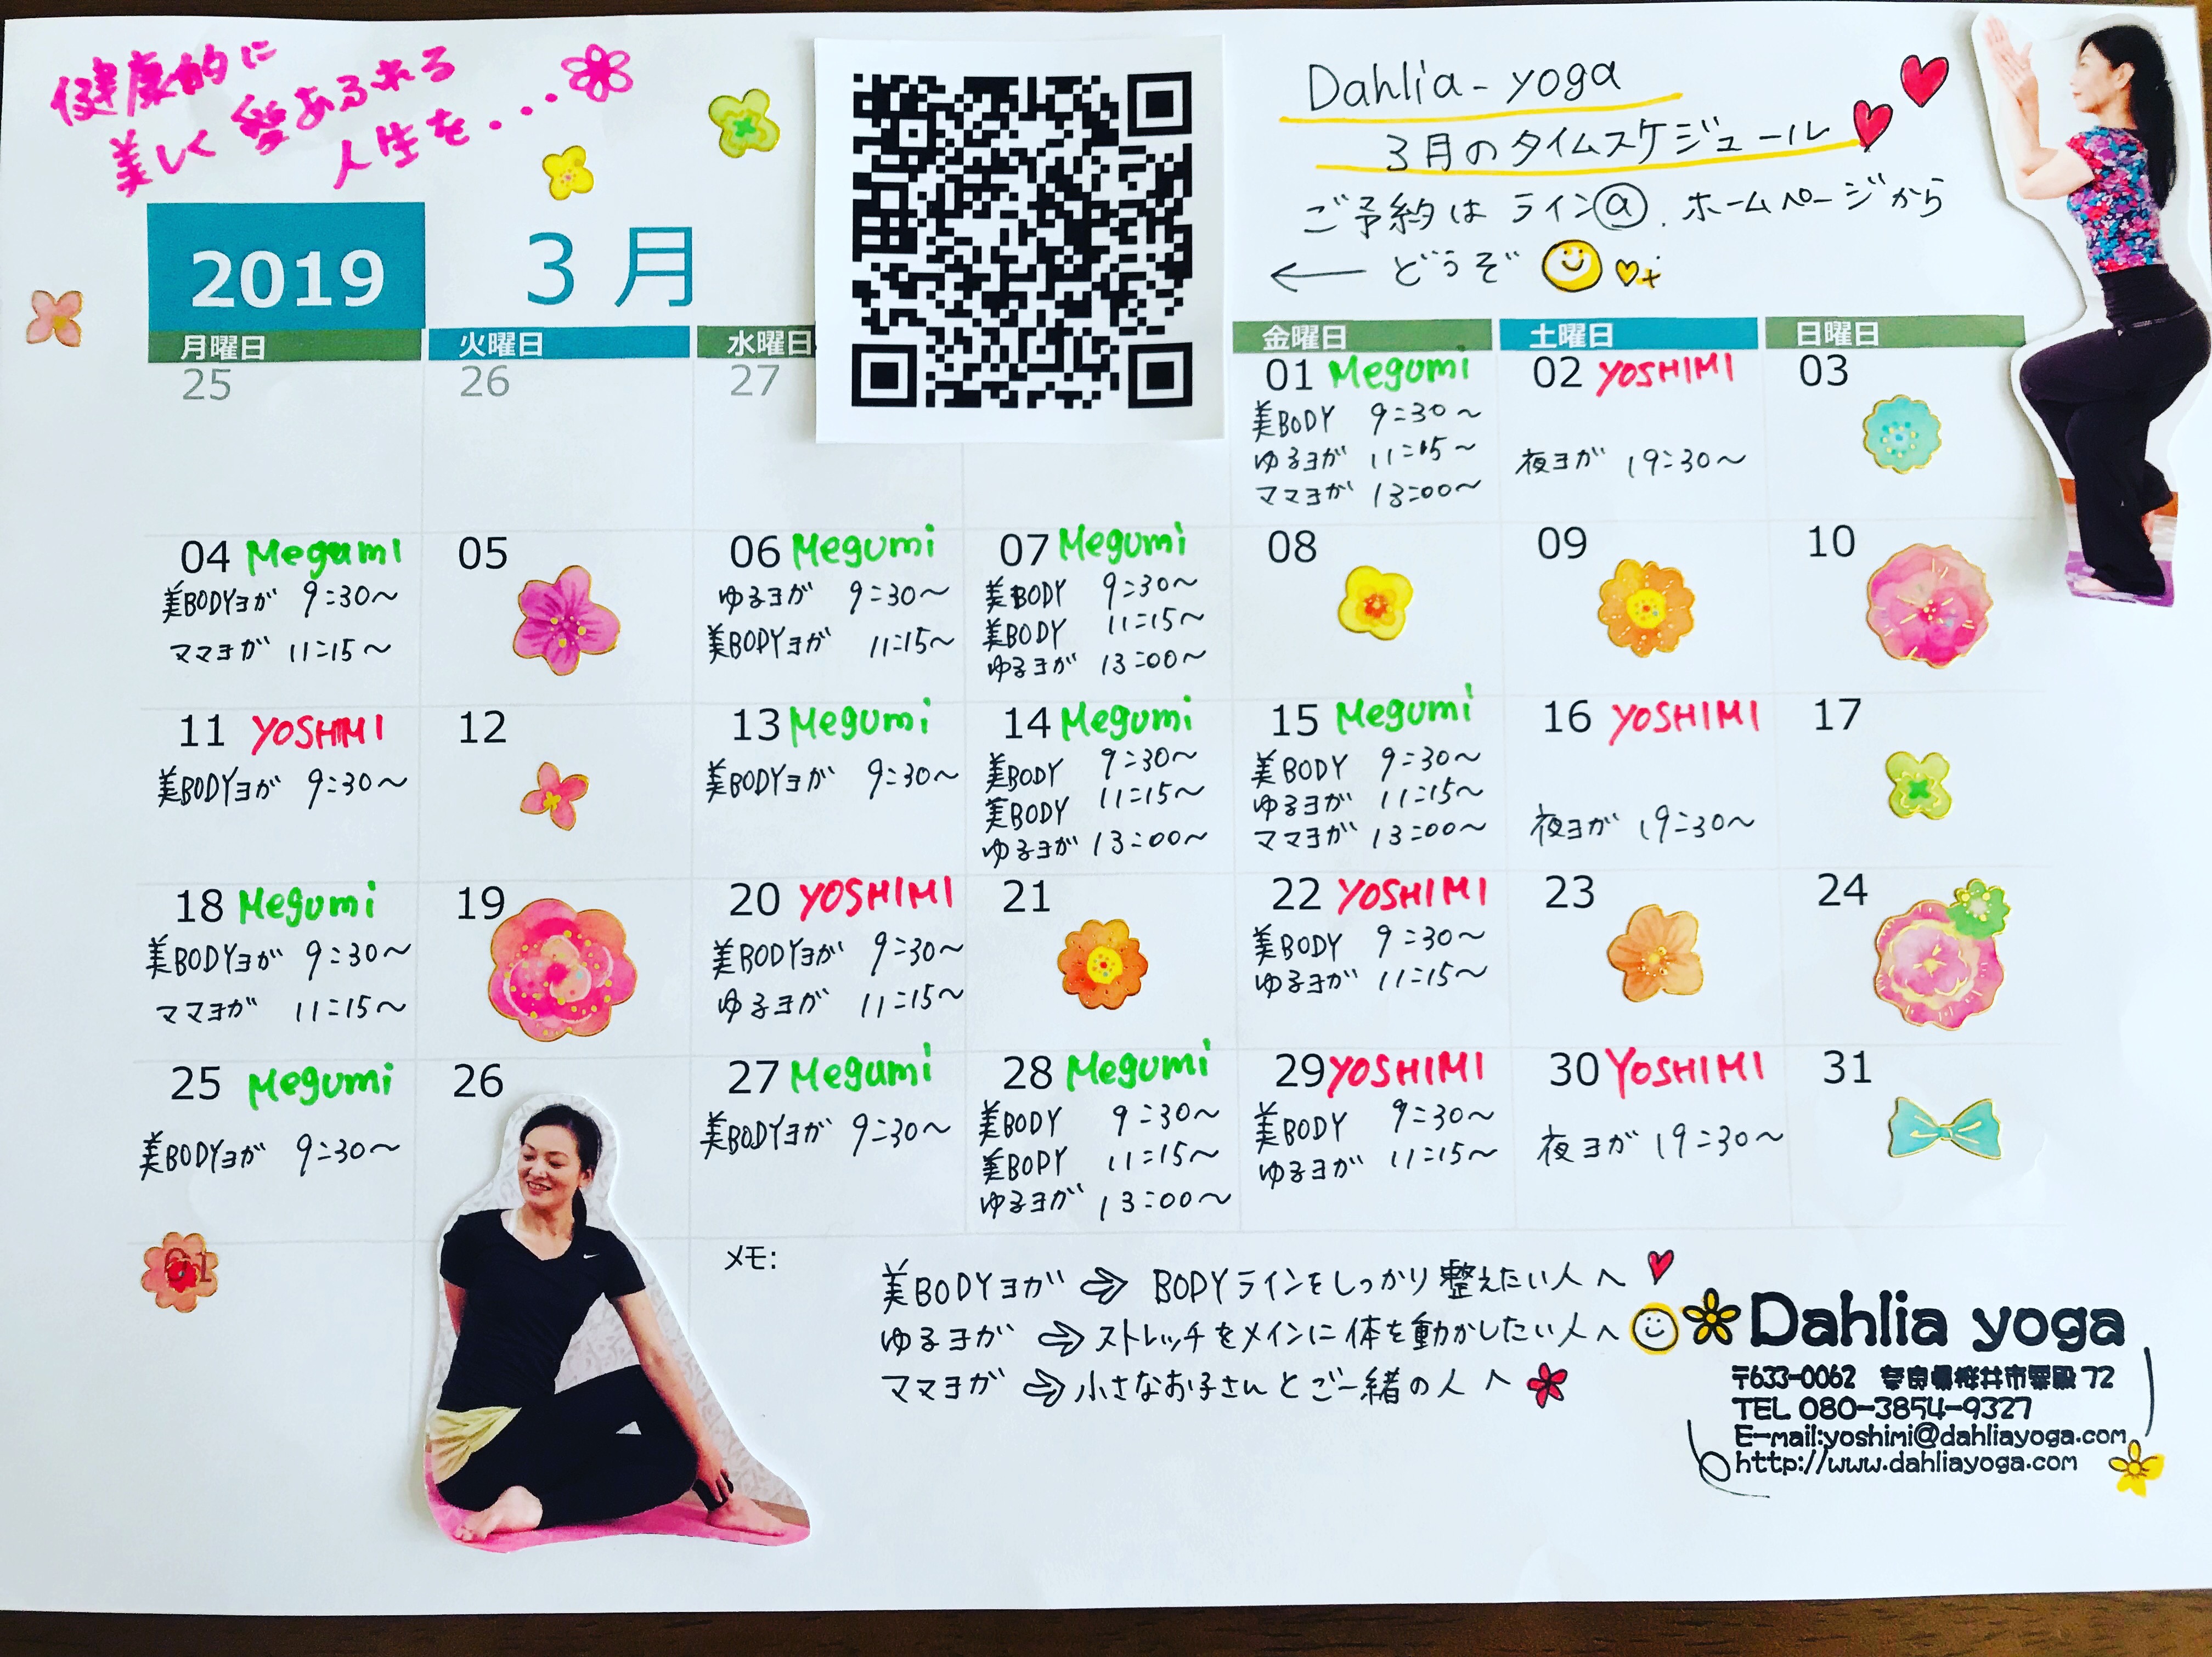 健康的に
美しく愛あふれる
人生を・・・
Dahlia-yoga
3月のタイムスケジュール
ご予約は ラインⓐ、ホームページから
← どうぞ
2019
3月
月曜日 火曜日 水曜日 金曜日 土曜日 日曜日
25 26 27
01 Megumi
美BODY 9:30〜
ゆるヨガ 11:15〜
ママヨガ 13:00〜
02 YOSHIMI
夜ヨガ 19:30〜
03
04 Megumi
美BODYヨガ 9:30〜
ママヨガ 11:15〜
05
06 Megumi
ゆるヨガ 9:30〜
美BODYヨガ 11:15〜
07 Megumi
美BODY 9:30〜
美BODY 11:15〜
ゆるヨガ 13:00〜
08
09
10
11 YOSHIMI
美BODYヨガ 9:30〜
12
13 Megumi
美BODYヨガ 9:30〜
14 Megumi
美BODY 9:30〜
美BODY 11:15〜
ゆるヨガ 13:00〜
15 Megumi
美BODY 9:30〜
ゆるヨガ 11:15〜
ママヨガ 13:00〜
16 YOSHIMI
夜ヨガ 19:30〜
17
18 Megumi
美BODYヨガ 9:30〜
ママヨガ 11:15〜
19
20 YOSHIMI
美BODYヨガ 9:30〜
ゆるヨガ 11:15〜
21
22 YOSHIMI
美BODY 9:30〜
ゆるヨガ 11:15〜
23
24
25 Megumi
美BODYヨガ 9:30〜
26
27 Megumi
美BODYヨガ 9:30〜
28 Megumi
美BODY 9:30〜
美BODY 11:15〜
ゆるヨガ 13:00〜
29 YOSHIMI
美BODY 9:30〜
ゆるヨガ 11:15〜
30 YOSHIMI
夜ヨガ 19:30〜
31
01
メモ:
美BODYヨガ ⇨ BODYラインをしっかり整えたい人へ
ゆるヨガ ⇨ ストレッチをメインに体を動かしたい人へ
ママヨガ ⇨ 小さなお子さんとご一緒の人へ
Dahlia yoga
〒633-0062 奈良県桜井市粟殿72
TEL 080-3854-9327
E-mail:yoshimi@dahliayoga.com
http://www.dahliayoga.com